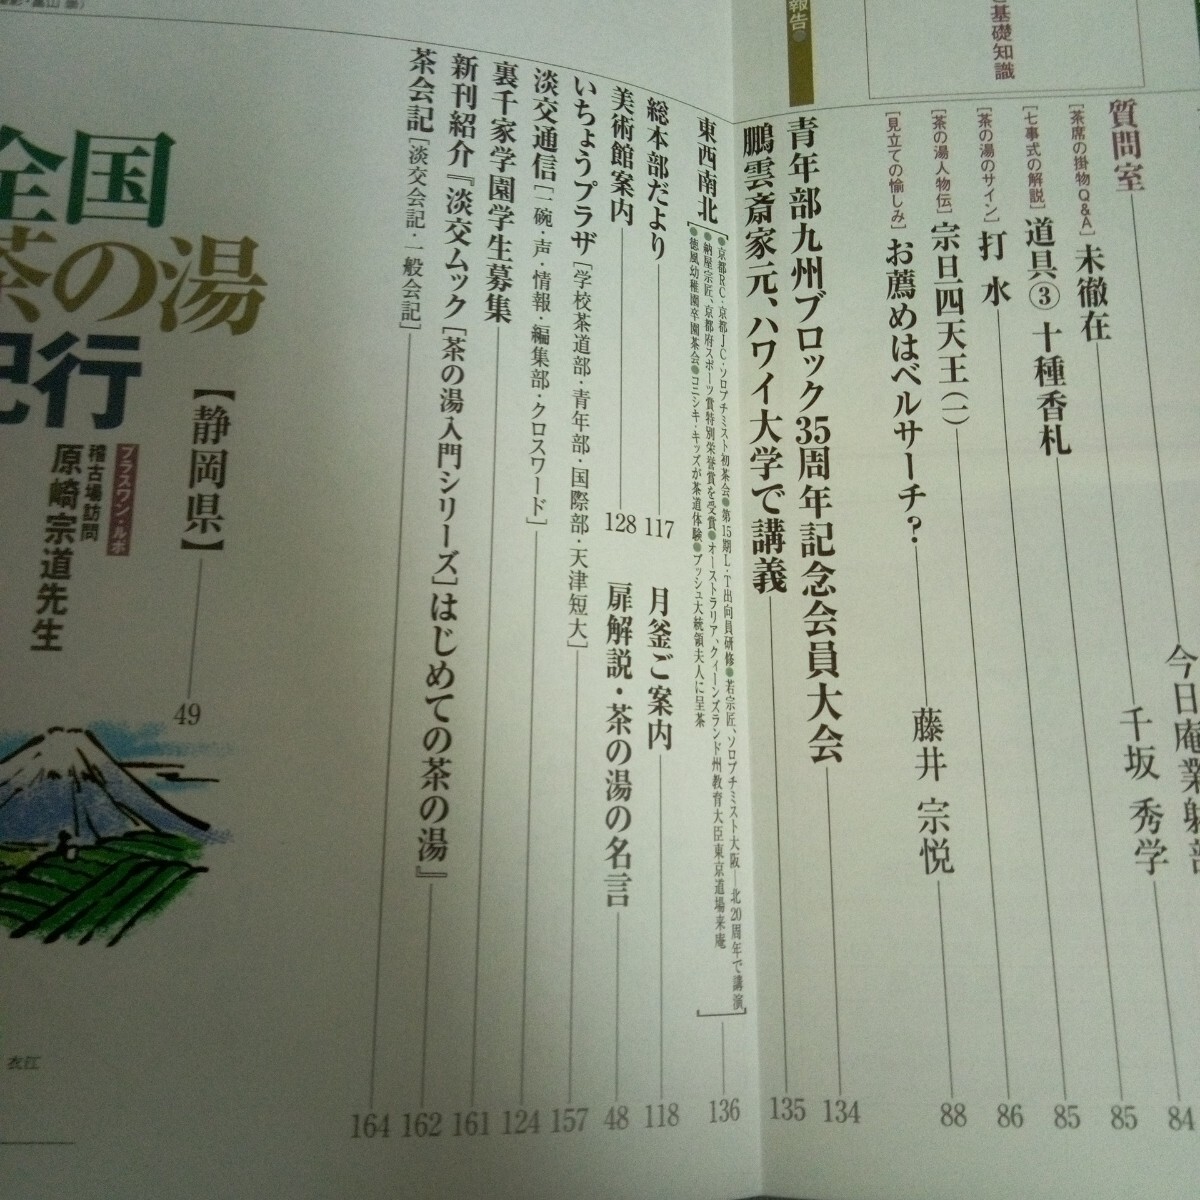 基礎知識
報告●
質問室
今日庵業躰部
84
[茶席の掛物Q&A] 未徹在
千坂 秀学
85
[七事式の解説] 道具③ 十種香札
85
[茶の湯のサイン] 打 水
86
[茶の湯人物伝] 宗旦四天王(一)
[見立ての愉しみ] お薦めはベルサーチ?
藤井 宗悦
88
青年部九州ブロック35周年記念会員大会
134
鵬雲斎家元、ハワイ大学で講義
135
東西南北
●京都RC・京都JC・ソロプチミスト初茶会●第15期L・T出向員研修●若宗匠、ソロプチミスト大阪―北20周年で講演
●納屋宗匠、京都府スポーツ賞特別栄誉賞を受賞●オーストラリア、クィーンズランド州教育大臣東京道場来庵
●徳風幼稚園卒園茶会●コニシキ・キッズが茶道体験●ブッシュ大統領夫人に呈茶
136
総本部だより
117
月釜ご案内
118
美術館案内
128
扉解説・茶の湯の名言
48
いちょうプラザ [学校茶道部・青年部・国際部・天津短大]
157
淡交通信 [一碗・声・情報・編集部・クロスワード]
124
裏千家学園学生募集
161
新刊紹介『淡交ムック[茶の湯入門シリーズ]はじめての茶の湯』
162
茶会記 [淡交会記・一般会記]
164
全国
茶の湯
紀行
【静岡県】
49
プラスワン・ルポ
稽古場訪問
原崎宗道先生
衣江